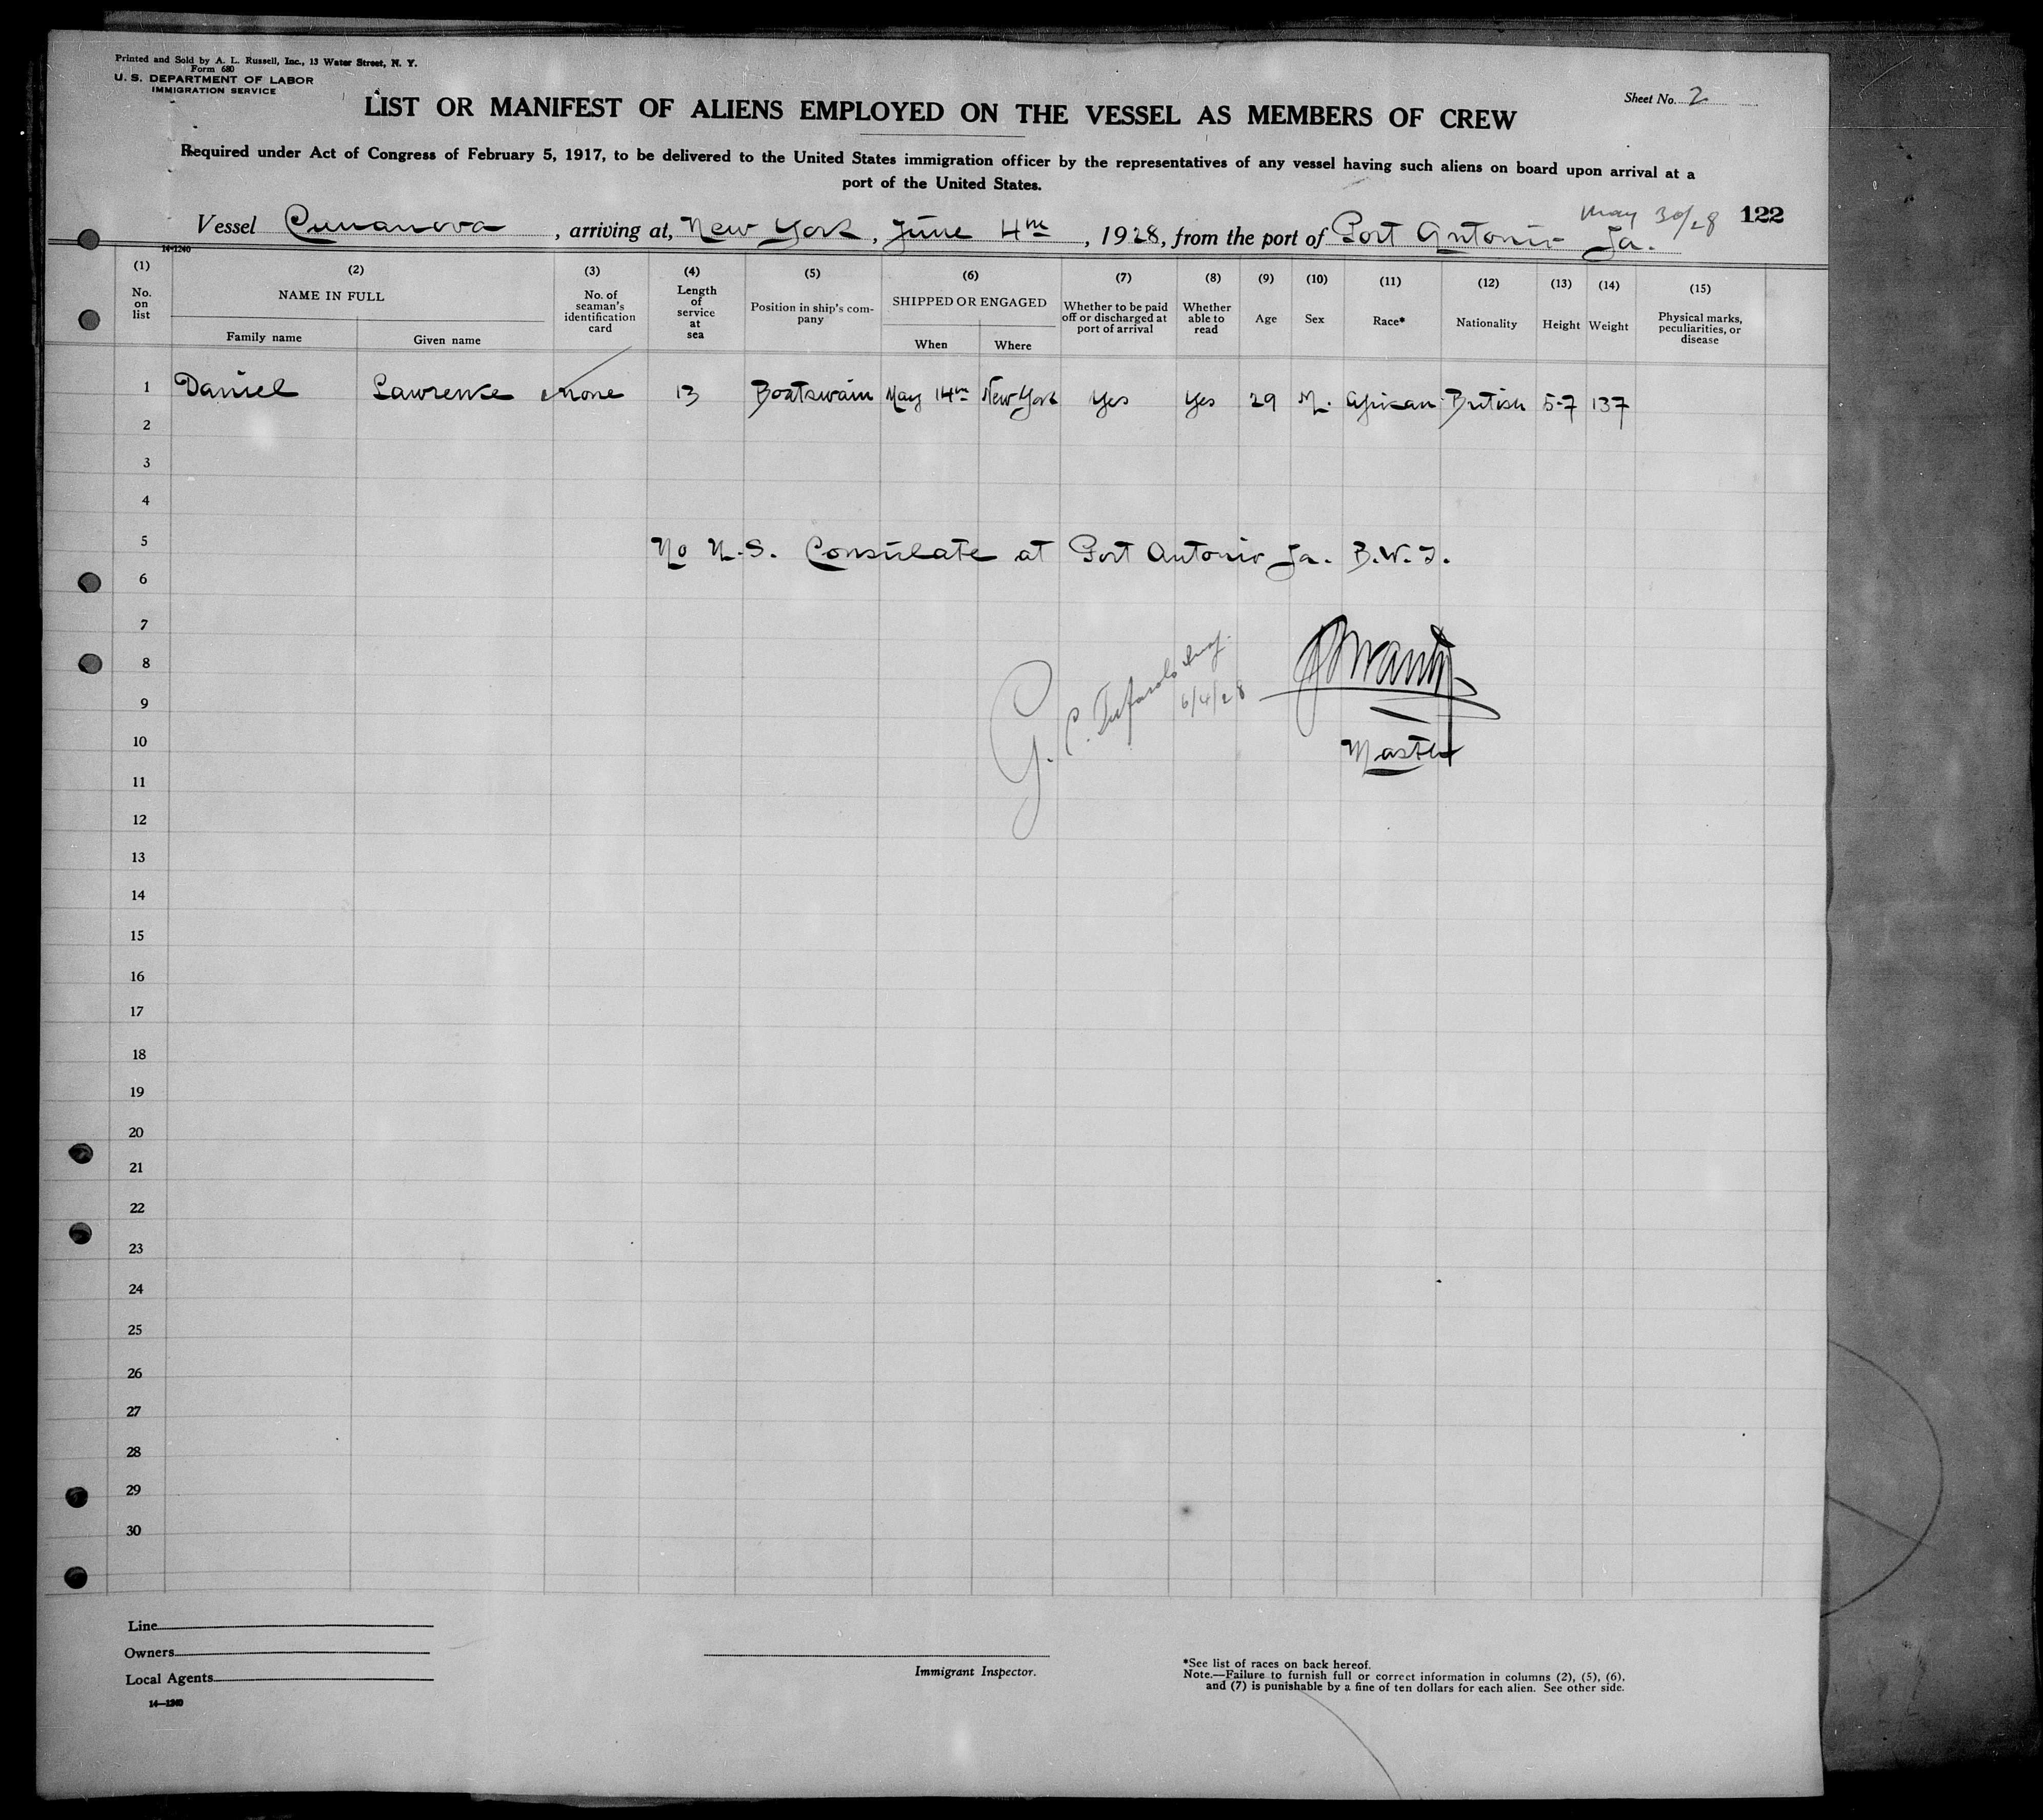 Printed and Sold by A. L. Russell, Inc., 13 Water Street, N. Y.
Form 680
U. S. DEPARTMENT OF LABOR
IMMIGRATION SERVICE
Sheet No. 2
LIST OR MANIFEST OF ALIENS EMPLOYED ON THE VESSEL AS MEMBERS OF CREW
Required under Act of Congress of February 5, 1917, to be delivered to the United States immigration officer by the representatives of any vessel having such aliens on board upon arrival at a
port of the United States.
May 30/28 122
Vessel Cumanova, arriving at, New York, June 4th, 1928, from the port of Port Antonio Ja.
14-1240
(1) (2) (3) (4) (5) (6) (7) (8) (9) (10) (11) (12) (13) (14) (15)
No. on list NAME IN FULL Family name Given name No. of seaman's identification card Length of service at sea Position in ship's company SHIPPED OR ENGAGED When Where Whether to be paid off or discharged at port of arrival Whether able to read Age Sex Race* Nationality Height Weight Physical marks, peculiarities, or disease
1 Daniel Lawrence None 13 Boatswain May 14th New York Yes Yes 29 M. African British 5-7 137
2
3
4
5 No U.S. Consulate at Port Antonio Ja. B.W.I.
6
7
8
9 6/4/28
10 Master
11
12
13
14
15
16
17
18
19
20
21
22
23
24
25
26
27
28
29
30
Line
Owners
Local Agents
14—1240
Immigrant Inspector.
*See list of races on back hereof.
Note.—Failure to furnish full or correct information in columns (2), (5), (6),
and (7) is punishable by a fine of ten dollars for each alien. See other side.